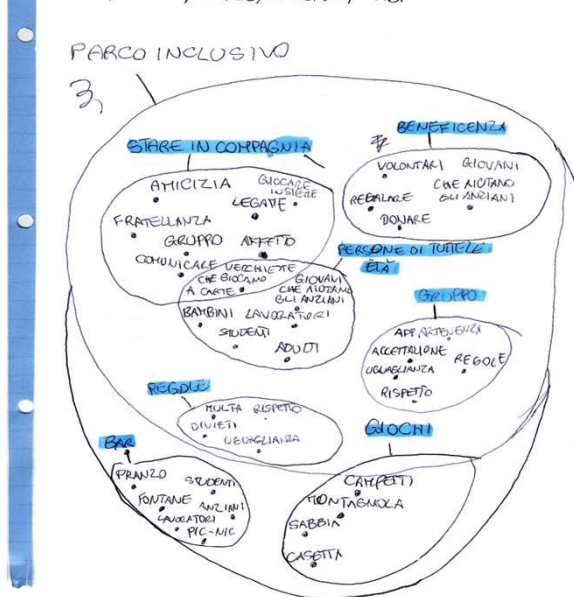 PARCO INCLUSIVO
3,
STARE IN COMPAGNIA
AMICIZIA
GIOCARE
INSIEME
LEGAME
FRATELLANZA
GRUPPO AFFETTO
COMUNICARE VECCHIETTE
CHE GIOCANO
A CARTE
BENEFICENZA
VOLONTARI GIOVANI
CHE AIUTANO
GLI ANZIANI
REGALARE
DONARE
PERSONE DI TUTTE LE
ETÀ
GIOVANI
CHE AIUTANO
GLI ANZIANI
BAMBINI LAVORATORI
STUDENTI
ADULTI
GRUPPO
APPARTENENZA
ACCETTAZIONE
REGOLE
UGUAGLIANZA
RISPETTO
REGOLE
MULTA RISPETTO
DIVIETI
UGUAGLIANZA
BAR
PRANZO STUDENTI
FONTANE ANZIANI
LAVORATORI
PIC-NIC
GIOCHI
CAMPETTI
MONTAGNOLA
SABBIA
CASETTA